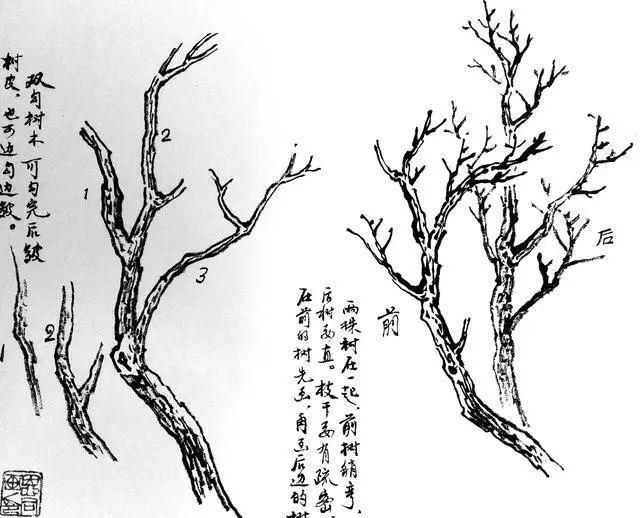 双勾树木可勾完后皴
树皮，也可边勾边皴。
1
2
3
1
2
后
前
两株树在一起，前树稍弯，
后树要直。枝干要有疏密，
在前的树先画，再画后边的树